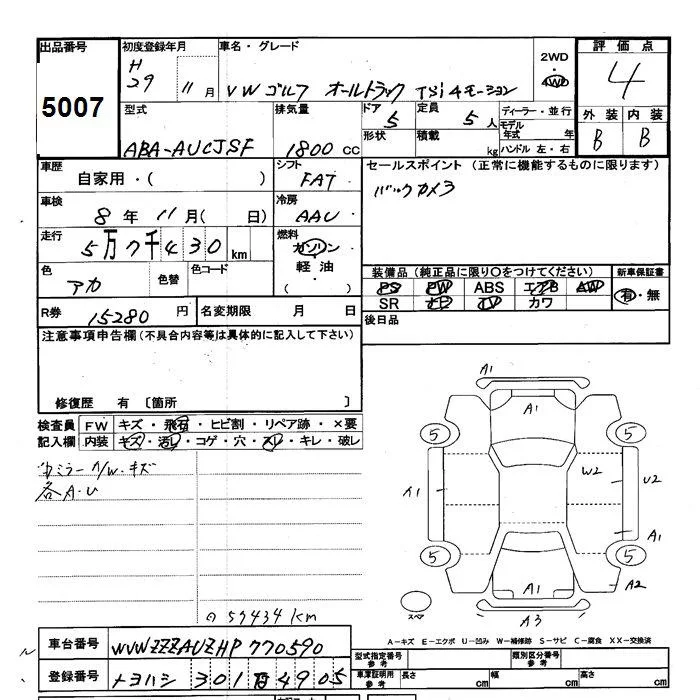 出品番号
5007
初度登録年月
H
29 11月
車名・グレード
VW ゴルフ オールトラック TSi 4モーション
2WD
4WD
評価点
4
外装 内装
B B
型式
ABA-AUCJSF
排気量
1800 CC
ドア
5
形状
定員
5人
積載
kg
ディーラー・並行
モデル年式 年
ハンドル 左・右
車歴
自家用・( )
シフト
FAT
セールスポイント(正常に機能するものに限ります)
バックカメラ
車検
8年 11月( 日)
冷房
AAC
走行
5万7千430km
燃料
ガソリン
軽油
( )
色
アカ
色替
色コード
装備品(純正品に限り○をつけてください)
PS PW ABS エアB AW
SR ナビ TV カワ
新車保証書
有・無
R券
15280円
名変期限 月 日
後日品
注意事項申告欄(不具合内容等は具体的に記入して下さい)
修復歴 有〔箇所 〕
検査員記入欄
FW キズ・飛石・ヒビ割・リペア跡・×要
内装 キズ・汚レ・コゲ・穴・スレ・キレ・破レ
ミラー A/W・キズ
各A・U
57434km
A1
A1
5 5
A1
W2
U2
A1
5 5
A2
A1
A3
スペア
A-キズ E-エクボ U-凹み W-補修跡 S-サビ C-腐食 XX-交換済
車台番号
WVWZZZAUZHP770590
登録番号
トヨハシ 301 4905
型式指定番号 参考
類別区分番号 参考
車庫証明用 参考
長さ cm
幅 cm
高さ cm